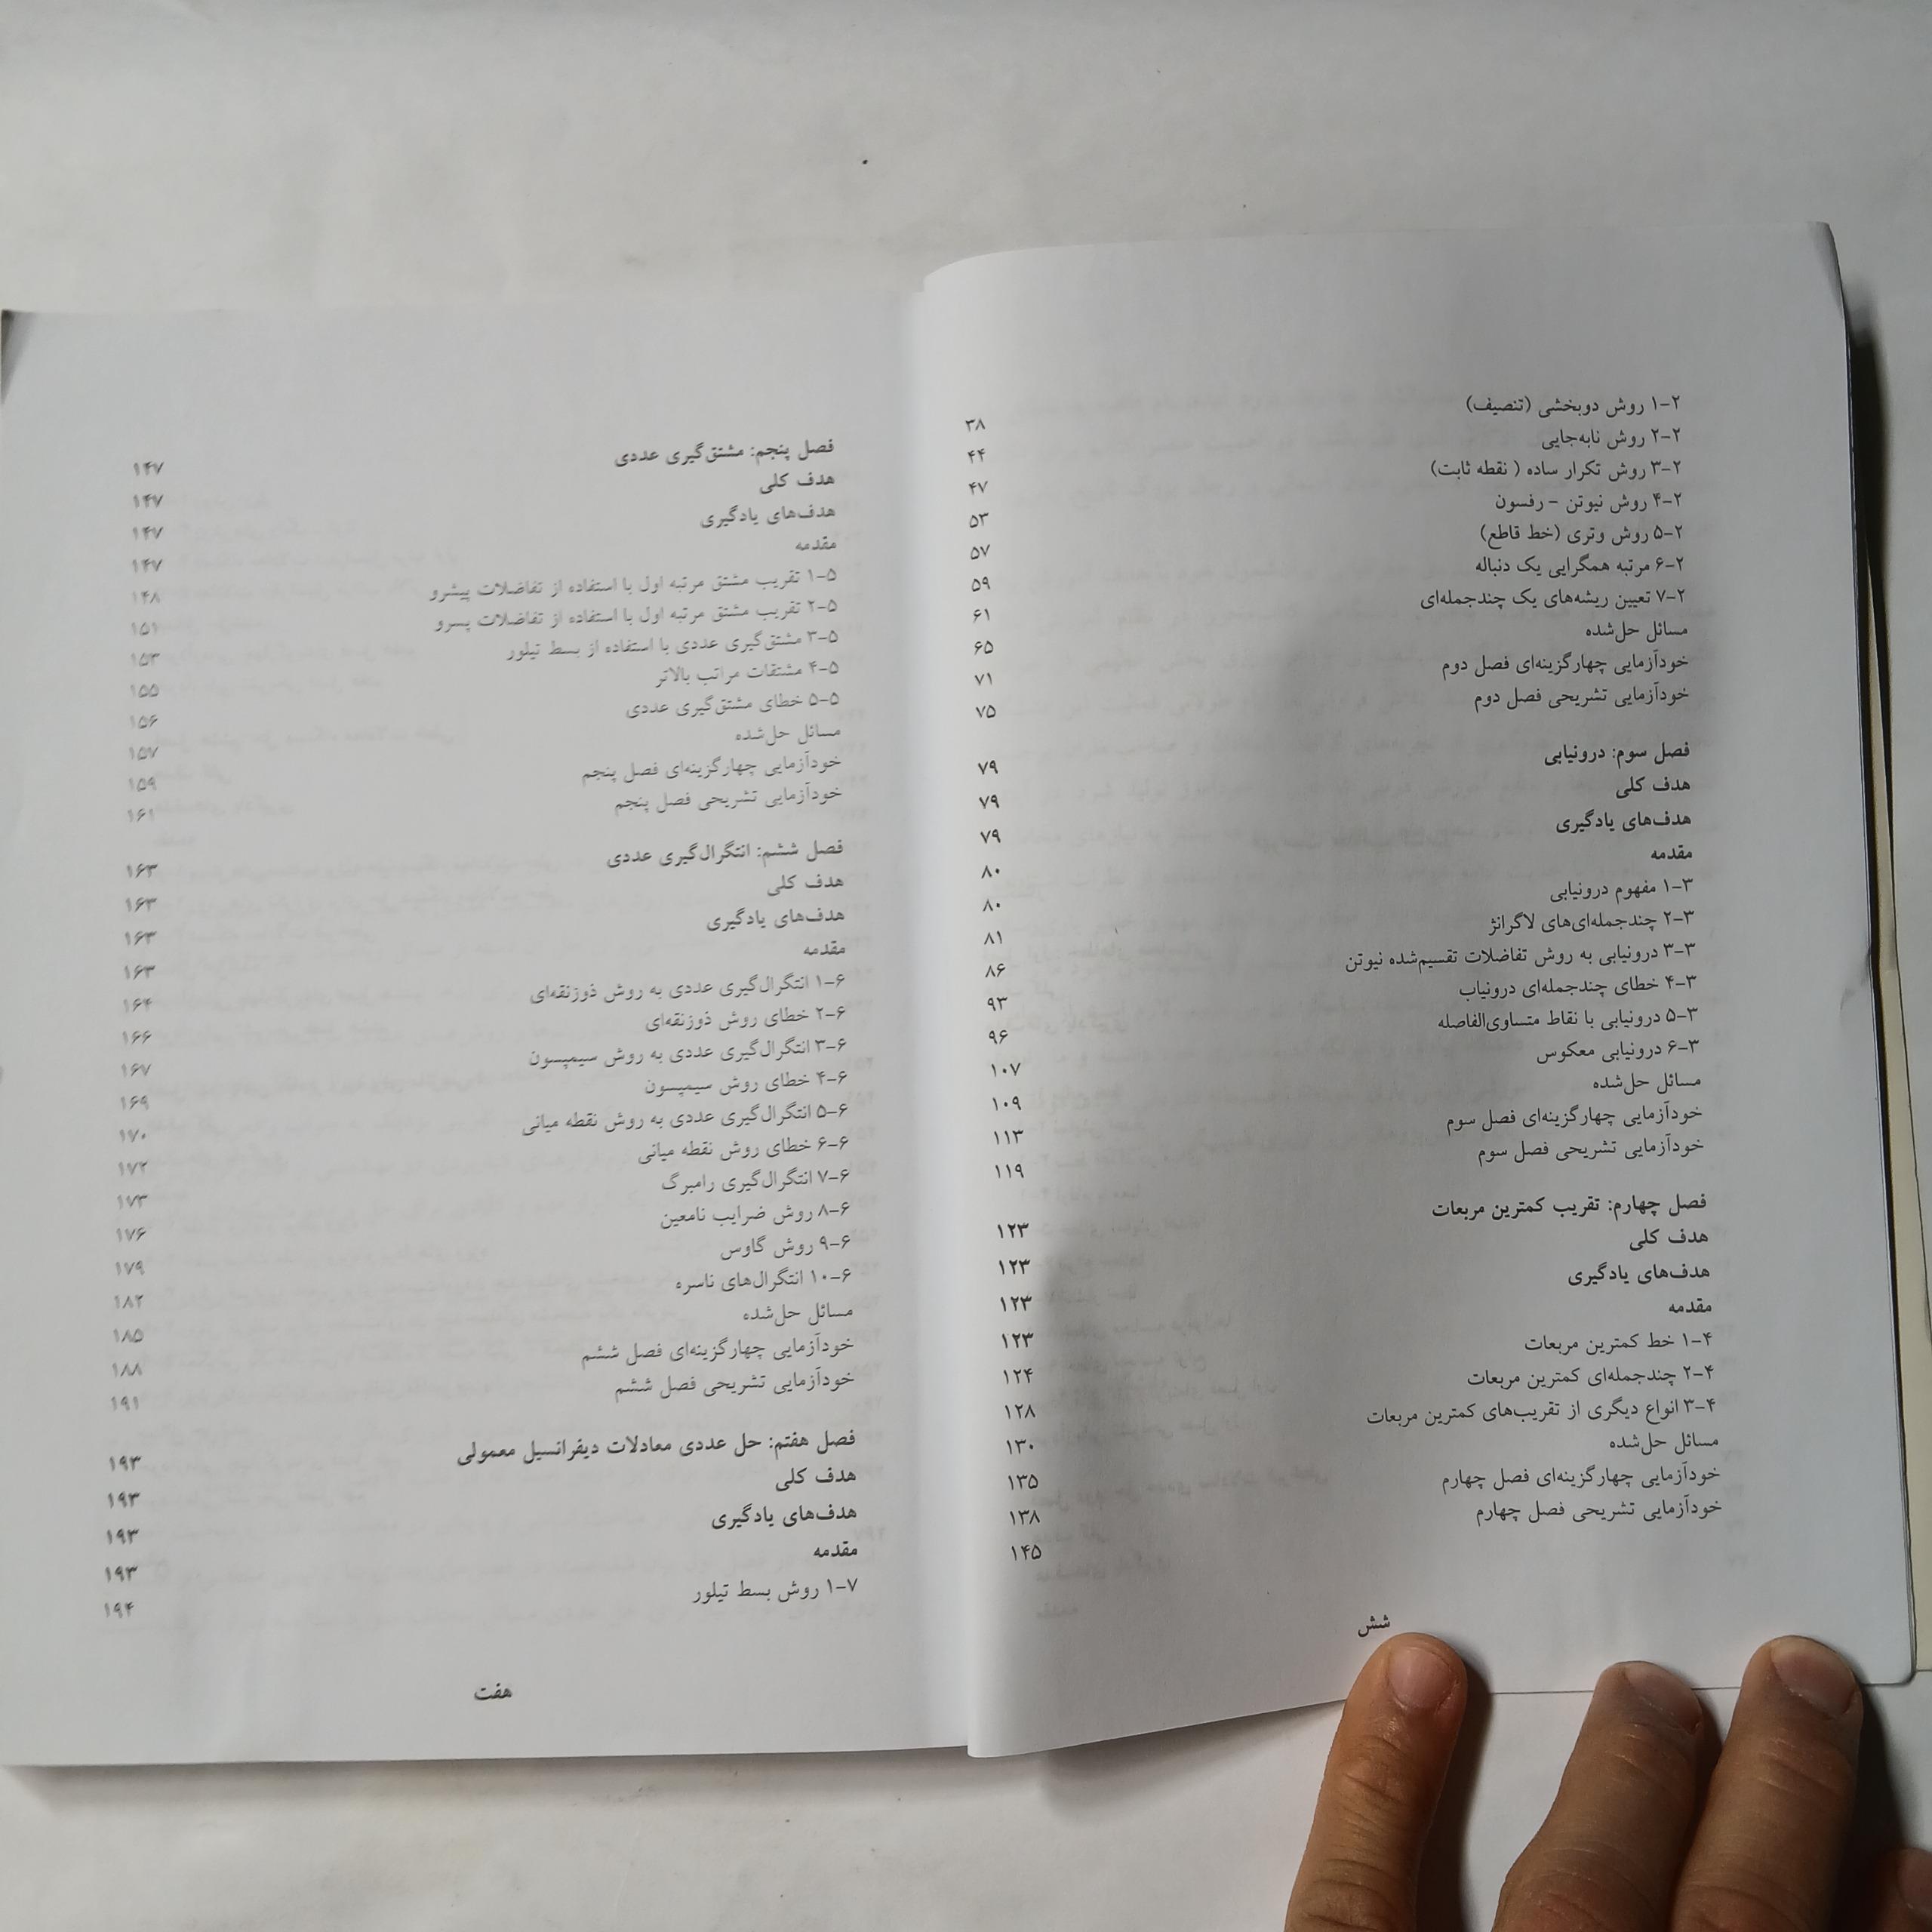 ۱-۲ روش دوبخشی (تنصیف) ۳۸
۲-۲ روش نابه‌جایی ۴۴
۳-۲ روش تکرار ساده ( نقطه ثابت) ۴۷
۴-۲ روش نیوتن - رفسون ۵۳
۵-۲ روش وتری (خط قاطع) ۵۷
۶-۲ مرتبه همگرایی یک دنباله ۵۹
۷-۲ تعیین ریشه‌های یک چندجمله‌ای ۶۱
مسائل حل‌شده ۶۵
خودآزمایی چهارگزینه‌ای فصل دوم ۷۱
خودآزمایی تشریحی فصل دوم ۷۵
فصل سوم: درونیابی ۷۹
هدف کلی ۷۹
هدف‌های یادگیری ۷۹
مقدمه ۸۰
۱-۳ مفهوم درونیابی ۸۰
۲-۳ چندجمله‌ای‌های لاگرانژ ۸۱
۳-۳ درونیابی به روش تفاضلات تقسیم‌شده نیوتن ۸۶
۴-۳ خطای چندجمله‌ای درونیاب ۹۳
۵-۳ درونیابی با نقاط متساوی‌الفاصله ۹۶
۶-۳ درونیابی معکوس ۱۰۷
مسائل حل‌شده ۱۰۹
خودآزمایی چهارگزینه‌ای فصل سوم ۱۱۳
خودآزمایی تشریحی فصل سوم ۱۱۹
فصل چهارم: تقریب کمترین مربعات ۱۲۳
هدف کلی ۱۲۳
هدف‌های یادگیری ۱۲۳
مقدمه ۱۲۳
۱-۴ خط کمترین مربعات ۱۲۴
۲-۴ چندجمله‌ای کمترین مربعات ۱۲۸
۳-۴ انواع دیگری از تقریب‌های کمترین مربعات ۱۳۰
مسائل حل‌شده ۱۳۵
خودآزمایی چهارگزینه‌ای فصل چهارم ۱۳۸
خودآزمایی تشریحی فصل چهارم ۱۴۵
شش
فصل پنجم: مشتق‌گیری عددی ۱۴۷
هدف کلی ۱۴۷
هدف‌های یادگیری ۱۴۷
مقدمه ۱۴۷
۱-۵ تقریب مشتق مرتبه اول با استفاده از تفاضلات پیشرو ۱۴۸
۲-۵ تقریب مشتق مرتبه اول با استفاده از تفاضلات پسرو ۱۵۱
۳-۵ مشتق‌گیری عددی با استفاده از بسط تیلور ۱۵۳
۴-۵ مشتقات مراتب بالاتر ۱۵۵
۵-۵ خطای مشتق‌گیری عددی ۱۵۶
مسائل حل‌شده ۱۵۷
خودآزمایی چهارگزینه‌ای فصل پنجم ۱۵۹
خودآزمایی تشریحی فصل پنجم ۱۶۱
فصل ششم: انتگرال‌گیری عددی ۱۶۳
هدف کلی ۱۶۳
هدف‌های یادگیری ۱۶۳
مقدمه ۱۶۳
۱-۶ انتگرال‌گیری عددی به روش ذوزنقه‌ای ۱۶۴
۲-۶ خطای روش ذوزنقه‌ای ۱۶۶
۳-۶ انتگرال‌گیری عددی به روش سیمپسون ۱۶۷
۴-۶ خطای روش سیمپسون ۱۶۹
۵-۶ انتگرال‌گیری عددی به روش نقطه میانی ۱۷۰
۶-۶ خطای روش نقطه میانی ۱۷۲
۷-۶ انتگرال‌گیری رامبرگ ۱۷۳
۸-۶ روش ضرایب نامعین ۱۷۶
۹-۶ روش گاوس ۱۷۹
۱۰-۶ انتگرال‌های ناسره ۱۸۲
مسائل حل‌شده ۱۸۵
خودآزمایی چهارگزینه‌ای فصل ششم ۱۸۸
خودآزمایی تشریحی فصل ششم ۱۹۱
فصل هفتم: حل عددی معادلات دیفرانسیل معمولی ۱۹۳
هدف کلی ۱۹۳
هدف‌های یادگیری ۱۹۳
مقدمه ۱۹۳
۱-۷ روش بسط تیلور ۱۹۴
هفت